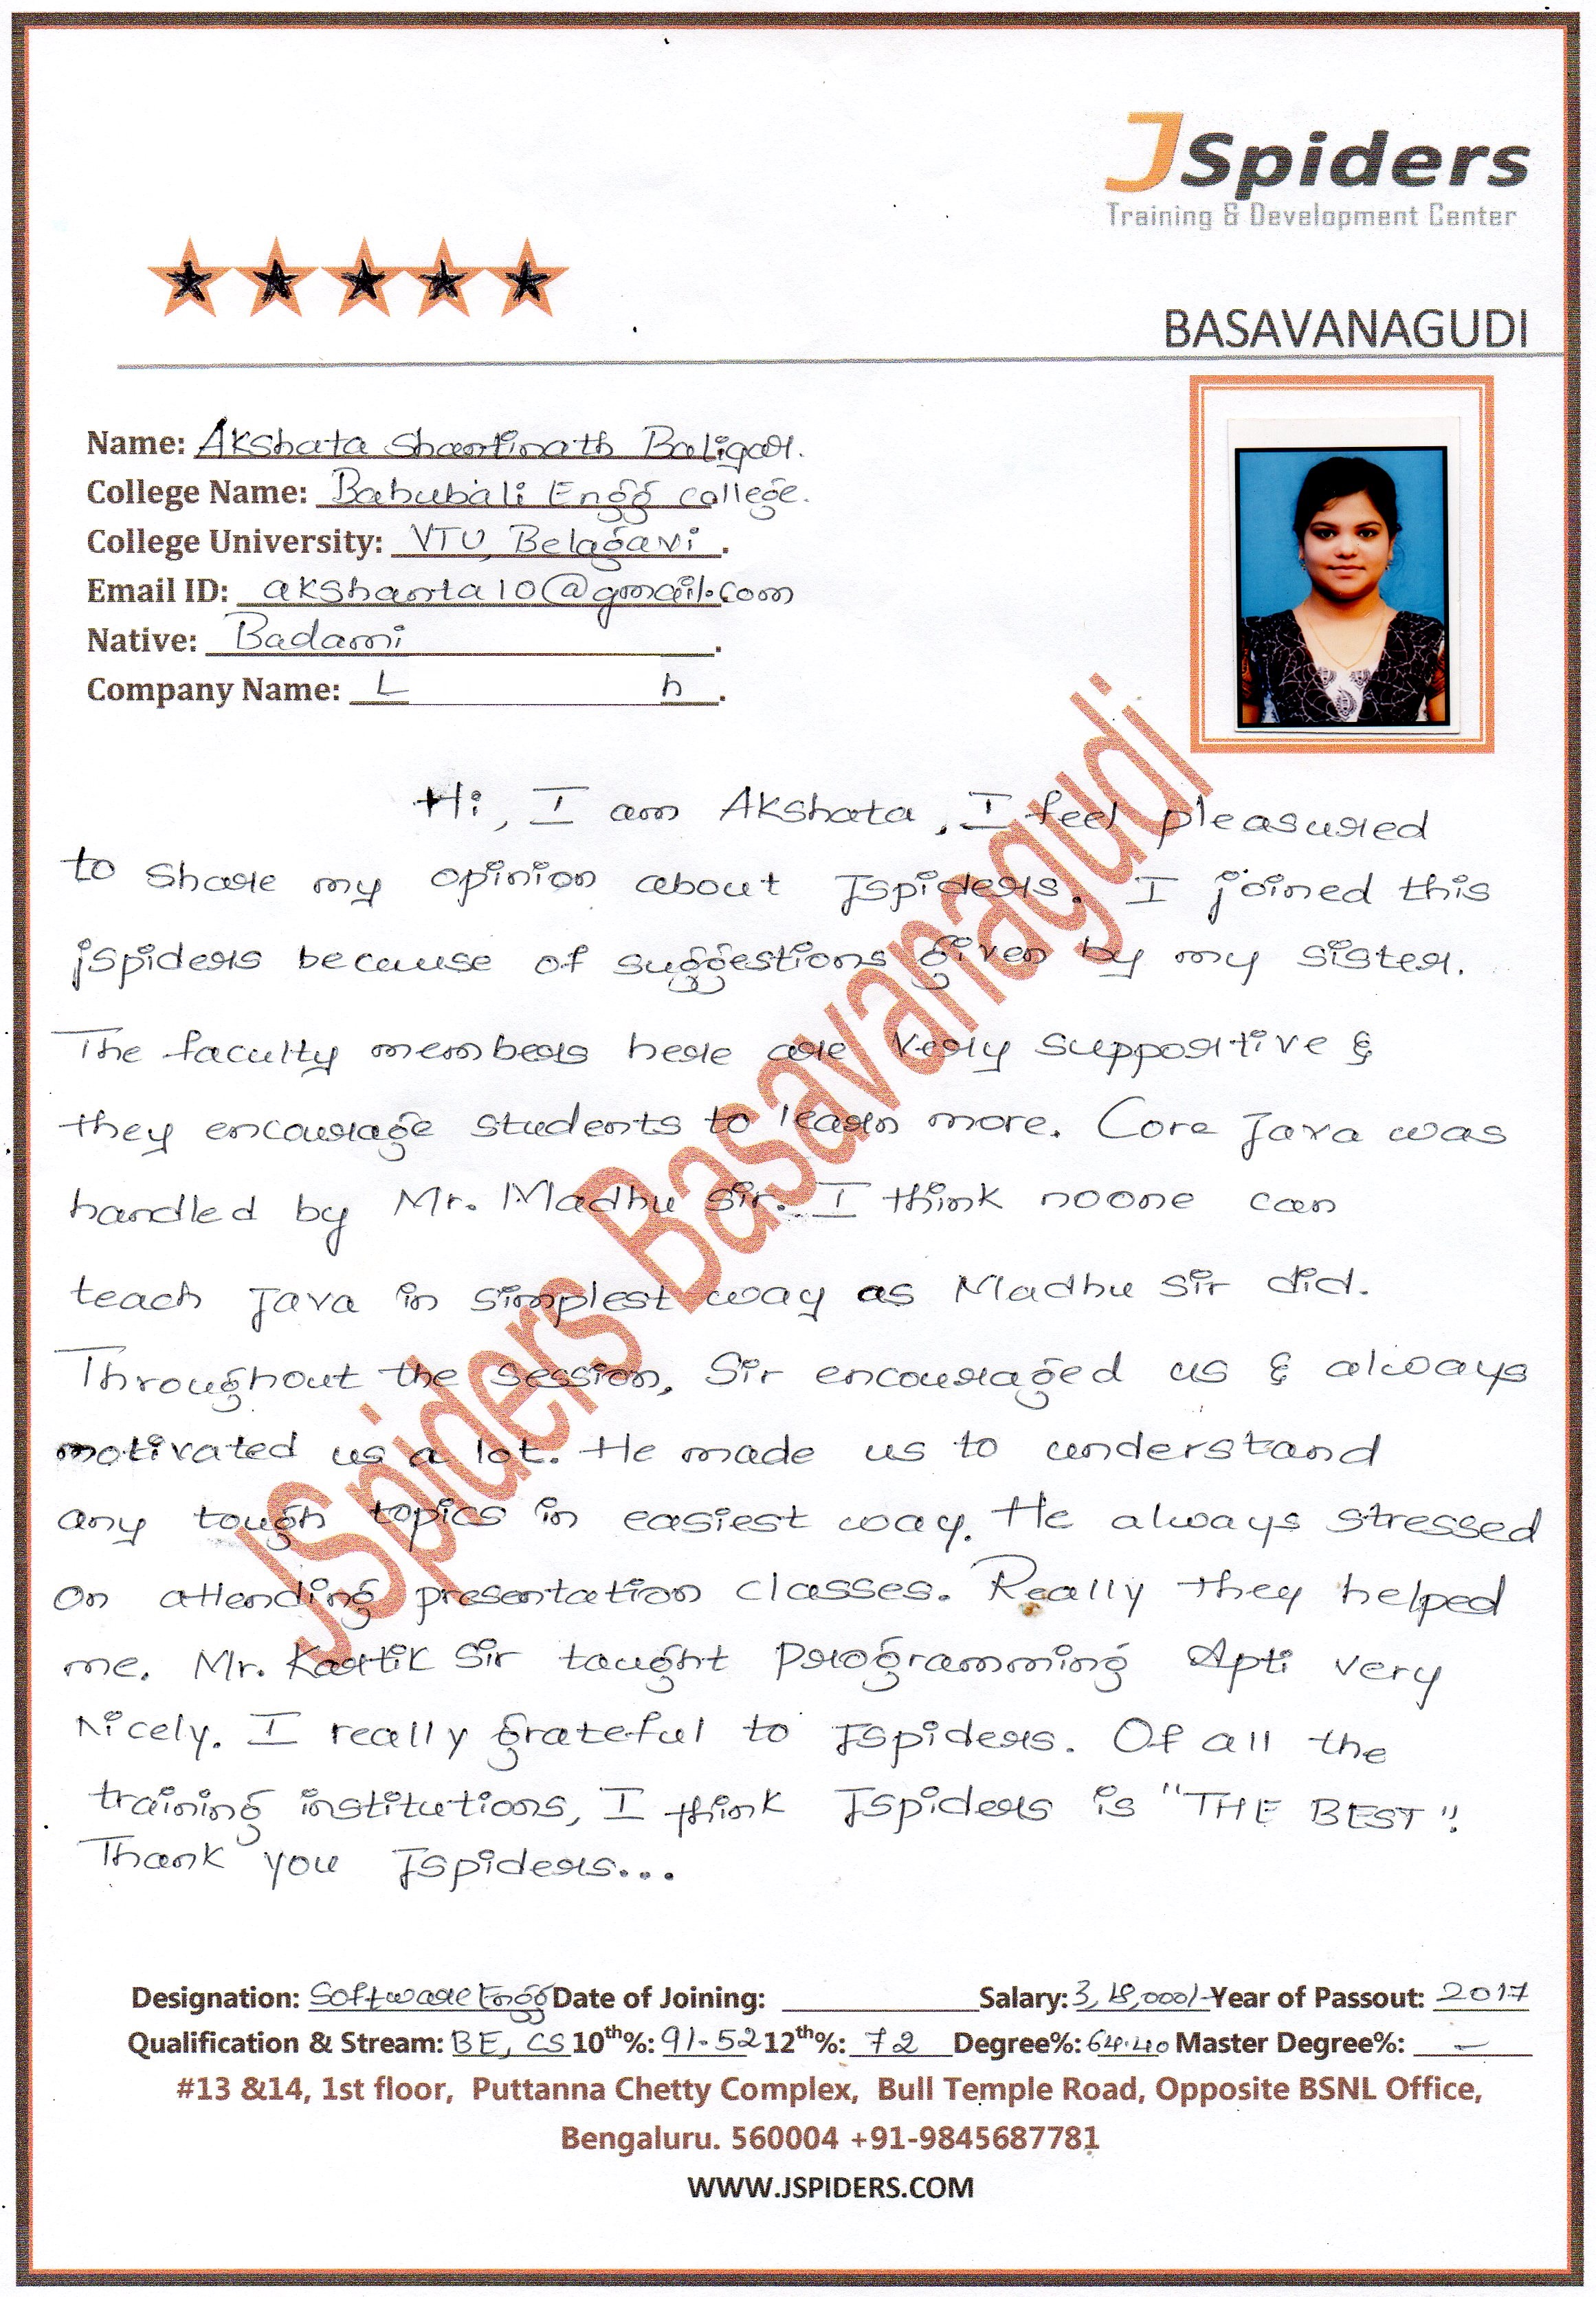 JSpiders
Training & Development Center
BASAVANAGUDI
Name: Akshata Shantinath Baligar.
College Name: Bahubali Engg college.
College University: VTU, Belagavi.
Email ID: akshanta10@gmail.com
Native: Badami.
Company Name: L h.
Hi, I am Akshata, I feel pleasured
to share my opinion about Jspiders. I joined this
jspiders because of suggestions given by my sister.
The faculty members here are very supportive &
they encourage students to learn more. Core Java was
handled by Mr. Madhu Sir. I think noone can
teach Java in simplest way as Madhu Sir did.
Throughout the session, Sir encouraged us & always
motivated us a lot. He made us to understand
any tough topics in easiest way. He always stressed
on attending presentation classes. Really they helped
me. Mr. Kartik Sir taught Programming Apti very
Nicely. I really grateful to Jspiders. Of all the
training institutions, I think Jspiders is "THE BEST".
Thank you Jspiders...
JSpiders Basavanagudi
Designation: Software Engg Date of Joining: Salary: Year of Passout: 2017
Qualification & Stream: BE, CS 10th%: 91.52 12th%: 72 Degree%: 64.40 Master Degree%: -
#13 &14, 1st floor, Puttanna Chetty Complex, Bull Temple Road, Opposite BSNL Office,
Bengaluru. 560004 +91-9845687781
WWW.JSPIDERS.COM